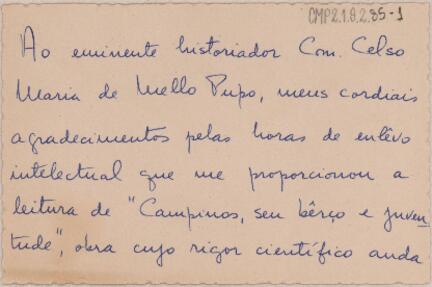 CMP2.1.8.2.85-1
Ao eminente historiador Com. Celso
Maria de Mello Pupo, meus cordiais
agradecimentos pelas horas de enlêvo
intelectual que me proporcionou a
leitura de "Campinas, seu bêrço e juven-
tude", obra cujo rigor científico anda